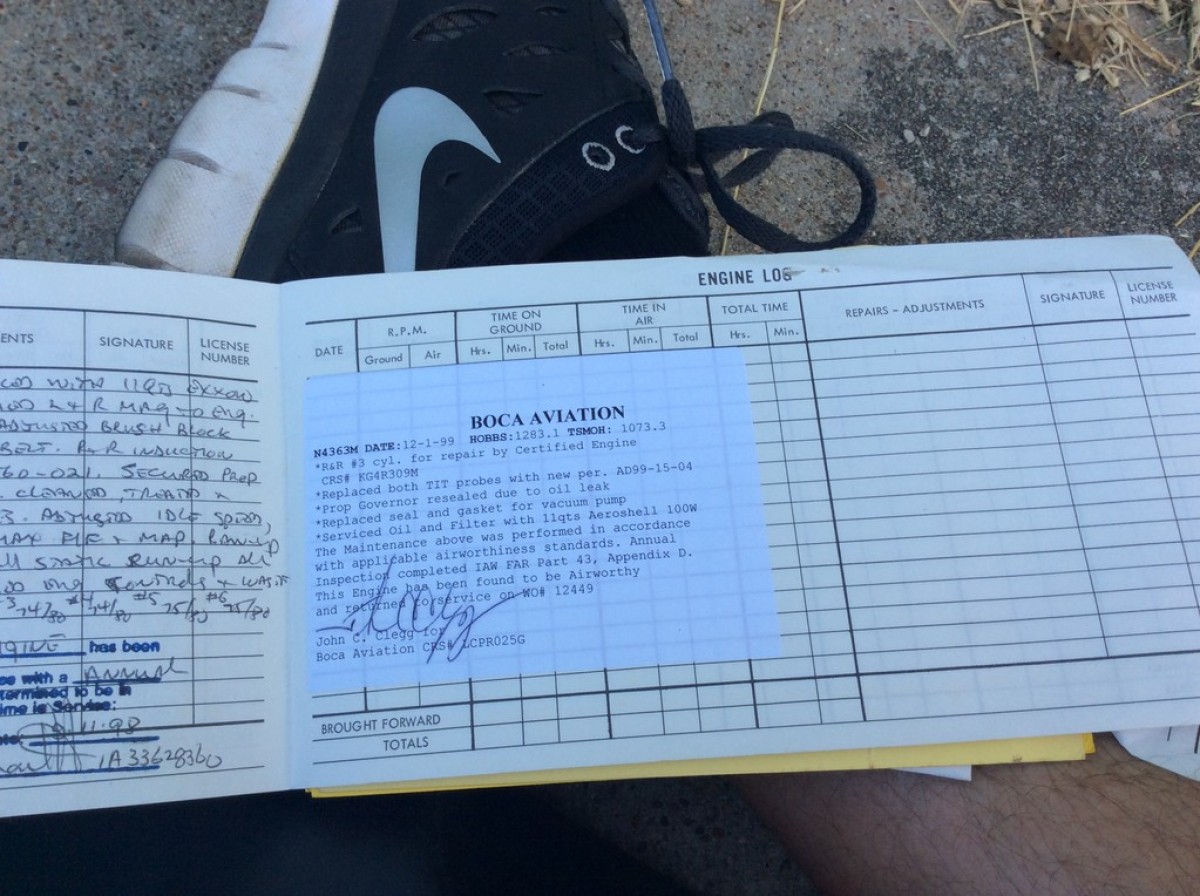 ENTS
SIGNATURE
LICENSE NUMBER
WITH 11QTS EXXON
L & R MAG - ENG.
ADJUSTED BRUSH BLOCK
BELT. R&R INDUCTION
60-021. SECURED PROP
CLEANED, TREATED &
3. ADJUSTED IDLE SPEED,
MAX F/F & MAP. RUN-UP
STATIC RUN-UP ALL
ENG CONTROLS & WASTE
74/80 #4 74/80 #5 75/80 #6 75/80
has been
ce with a ANNUAL
termined to be in
ime in Service:
11-98
IA 33628360
ENGINE LOG
DATE
R.P.M.
Ground
Air
TIME ON GROUND
Hrs.
Min.
Total
TIME IN AIR
Hrs.
Min.
Total
TOTAL TIME
Hrs.
Min.
REPAIRS - ADJUSTMENTS
SIGNATURE
LICENSE NUMBER
BOCA AVIATION
N4363M DATE:12-1-99 HOBBS:1283.1 TSMOH: 1073.3
*R&R #3 cyl. for repair by Certified Engine
CRS# KG4R309M
*Replaced both TIT probes with new per. AD99-15-04
*Prop Governor resealed due to oil leak
*Replaced seal and gasket for vacuum pump
*Serviced Oil and Filter with 11qts Aeroshell 100W
The Maintenance above was performed in accordance
with applicable airworthiness standards. Annual
Inspection completed IAW FAR Part 43, Appendix D.
This Engine has been found to be Airworthy
and returned forservice on WO# 12449
John C. Clegg for
Boca Aviation CRS# LCPR025G
BROUGHT FORWARD
TOTALS